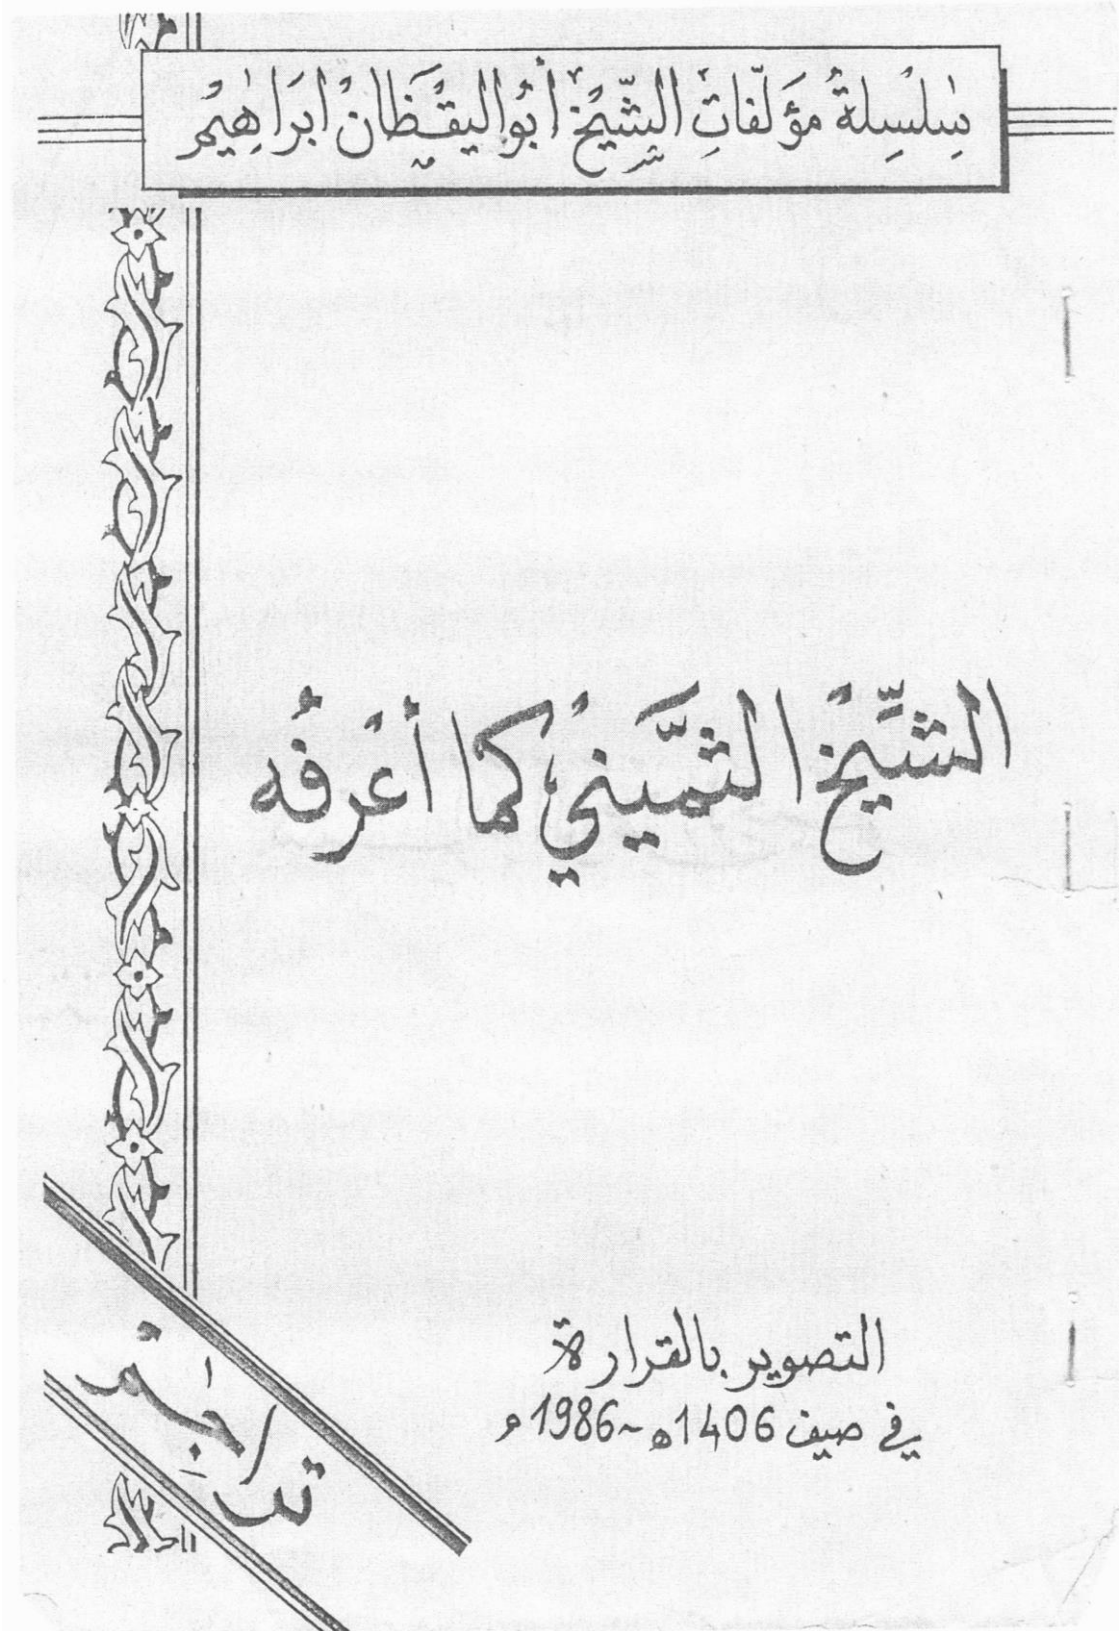 سِلْسِلةُ مؤَلّفاتِ الشّيْخ أبُو اليقْظَانْ ابرَاهِيمْ
الشّيْخْ الثّمَّينيُ كما أعْرفُه
التصوير بالقرارة
في صيف 1406ه~1986م
تراجِمْ